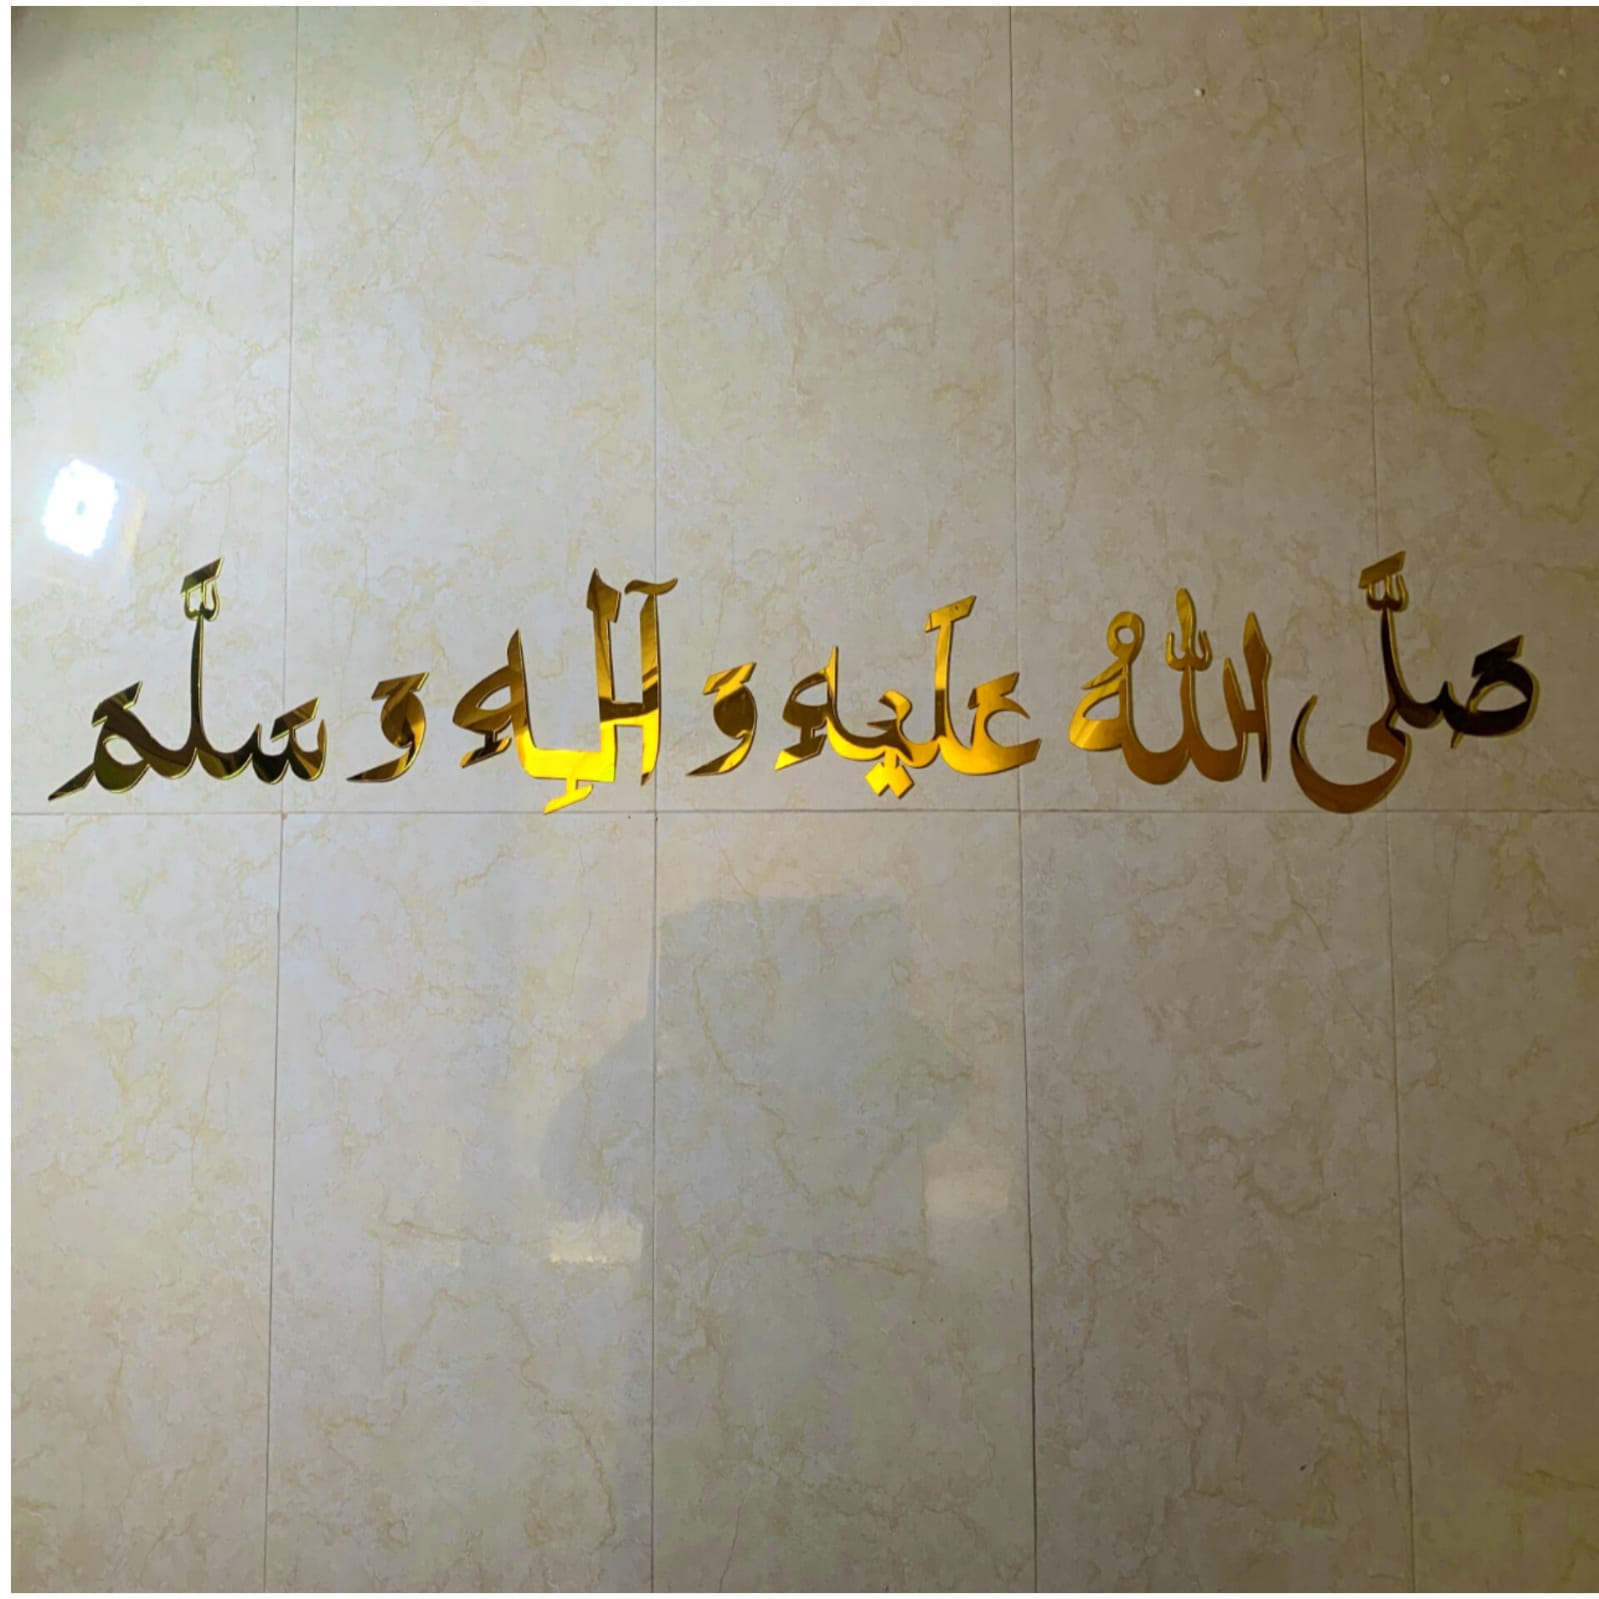 صَلَّى اللهُ عَلَيهِ وَ آلِهِ وَ سَلَّمَ